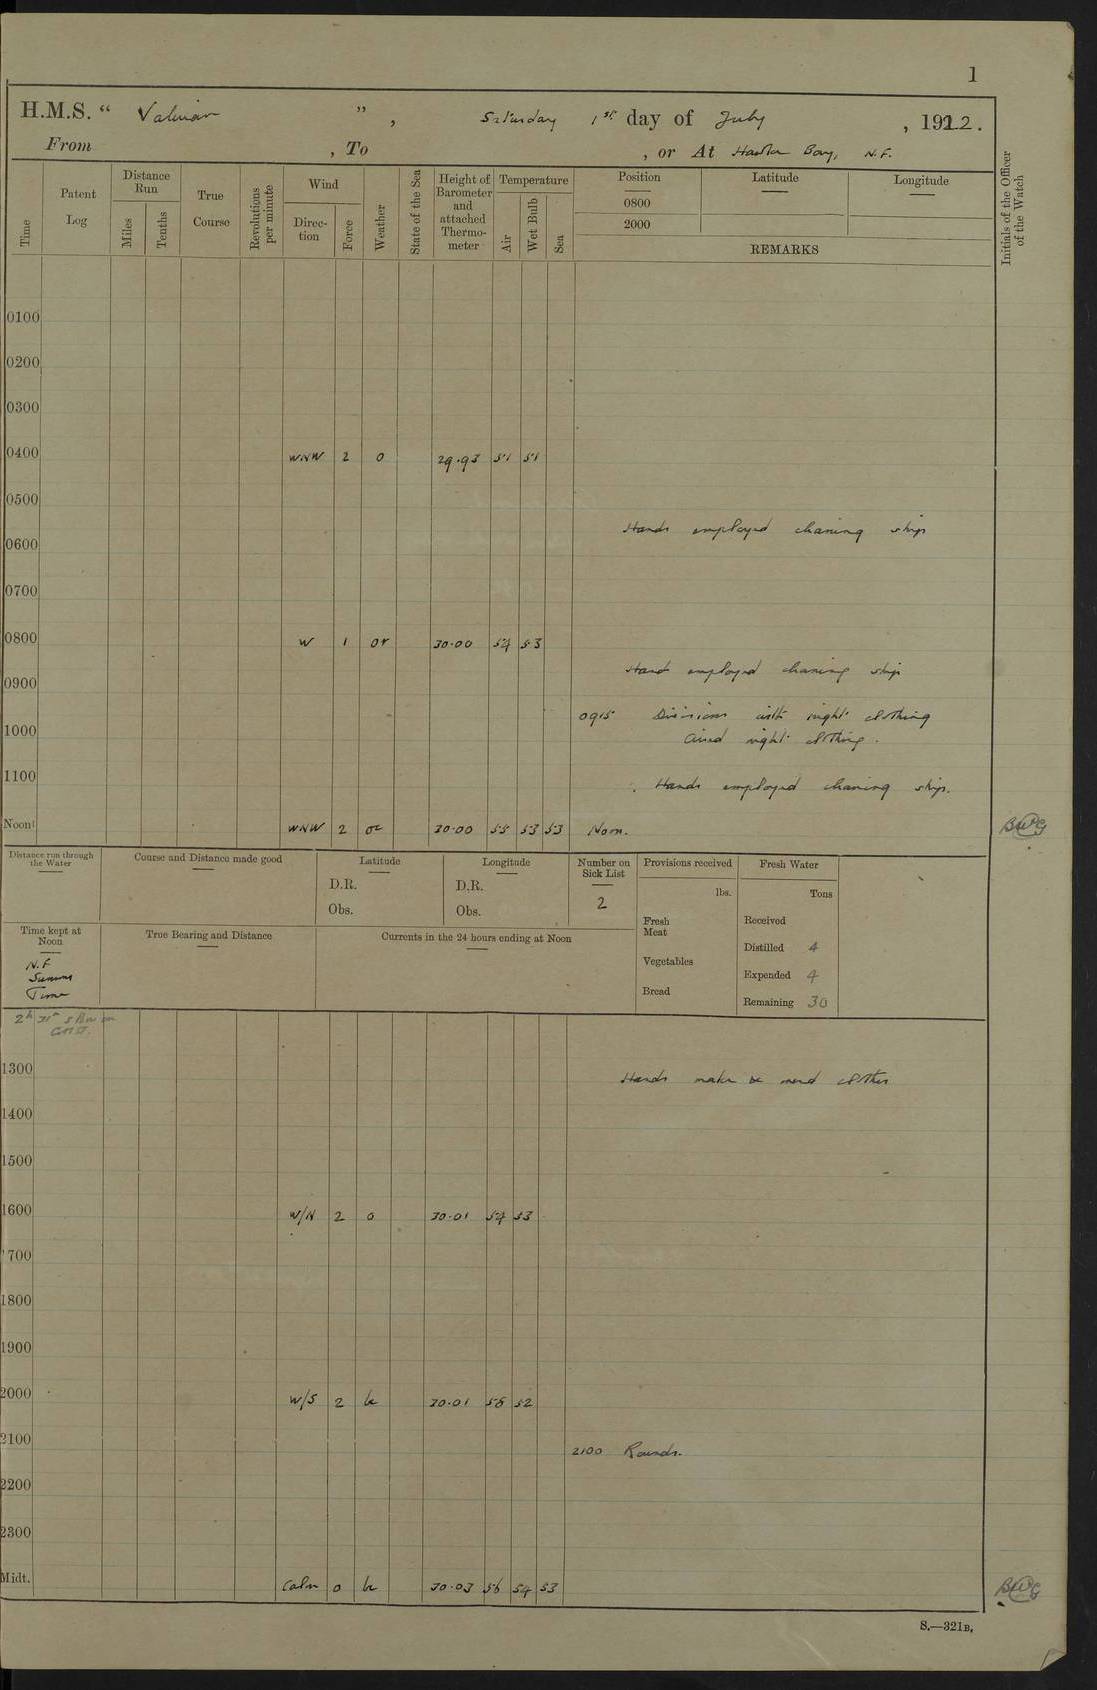 1
H.M.S. “ Valerian ” , Saturday 1st day of July , 1922.
From , To , or At Hawke Bay, N.F.
Time
Patent Log
Distance Run
Miles
Tenths
True Course
Revolutions per minute
Wind
Direc-tion
Force
Weather
State of the Sea
Height of Barometer and attached Thermo-meter
Temperature
Air
Wet Bulb
Sea
Position Latitude Longitude
0800
2000
REMARKS
Initials of the Officer of the Watch
0100
0200
0300
0400 WNW 2 o 29.93 51 51
0500
Hands employed cleaning ship
0600
0700
0800 W 1 or 30.00 54 53
Hands employed cleaning ship
0900
0915 Divisions with night clothing
Aired night clothing.
1000
1100
Hands employed cleaning ship.
Noon WNW 2 oc 30.00 55 53 53 Noon.
Distance run through the Water
Course and Distance made good
Latitude
D.R.
Obs.
Longitude
D.R.
Obs.
Number on Sick List
2
Provisions received
lbs.
Fresh Meat
Vegetables
Bread
Fresh Water
Tons
Received
Distilled 4
Expended 4
Remaining 30
Time kept at Noon
N.F.
Summer
Time
2h 31m slow on
G.M.T.
True Bearing and Distance
Currents in the 24 hours ending at Noon
1300
Hands make & mend clothes
1400
1500
1600 W/N 2 o 30.01 54 53
1700
1800
1900
2000 W/S 2 bc 30.01 52
2100
2100 Rounds.
2200
2300
Midt. Calm 0 bc 30.03 56 54 53
S.—321B.